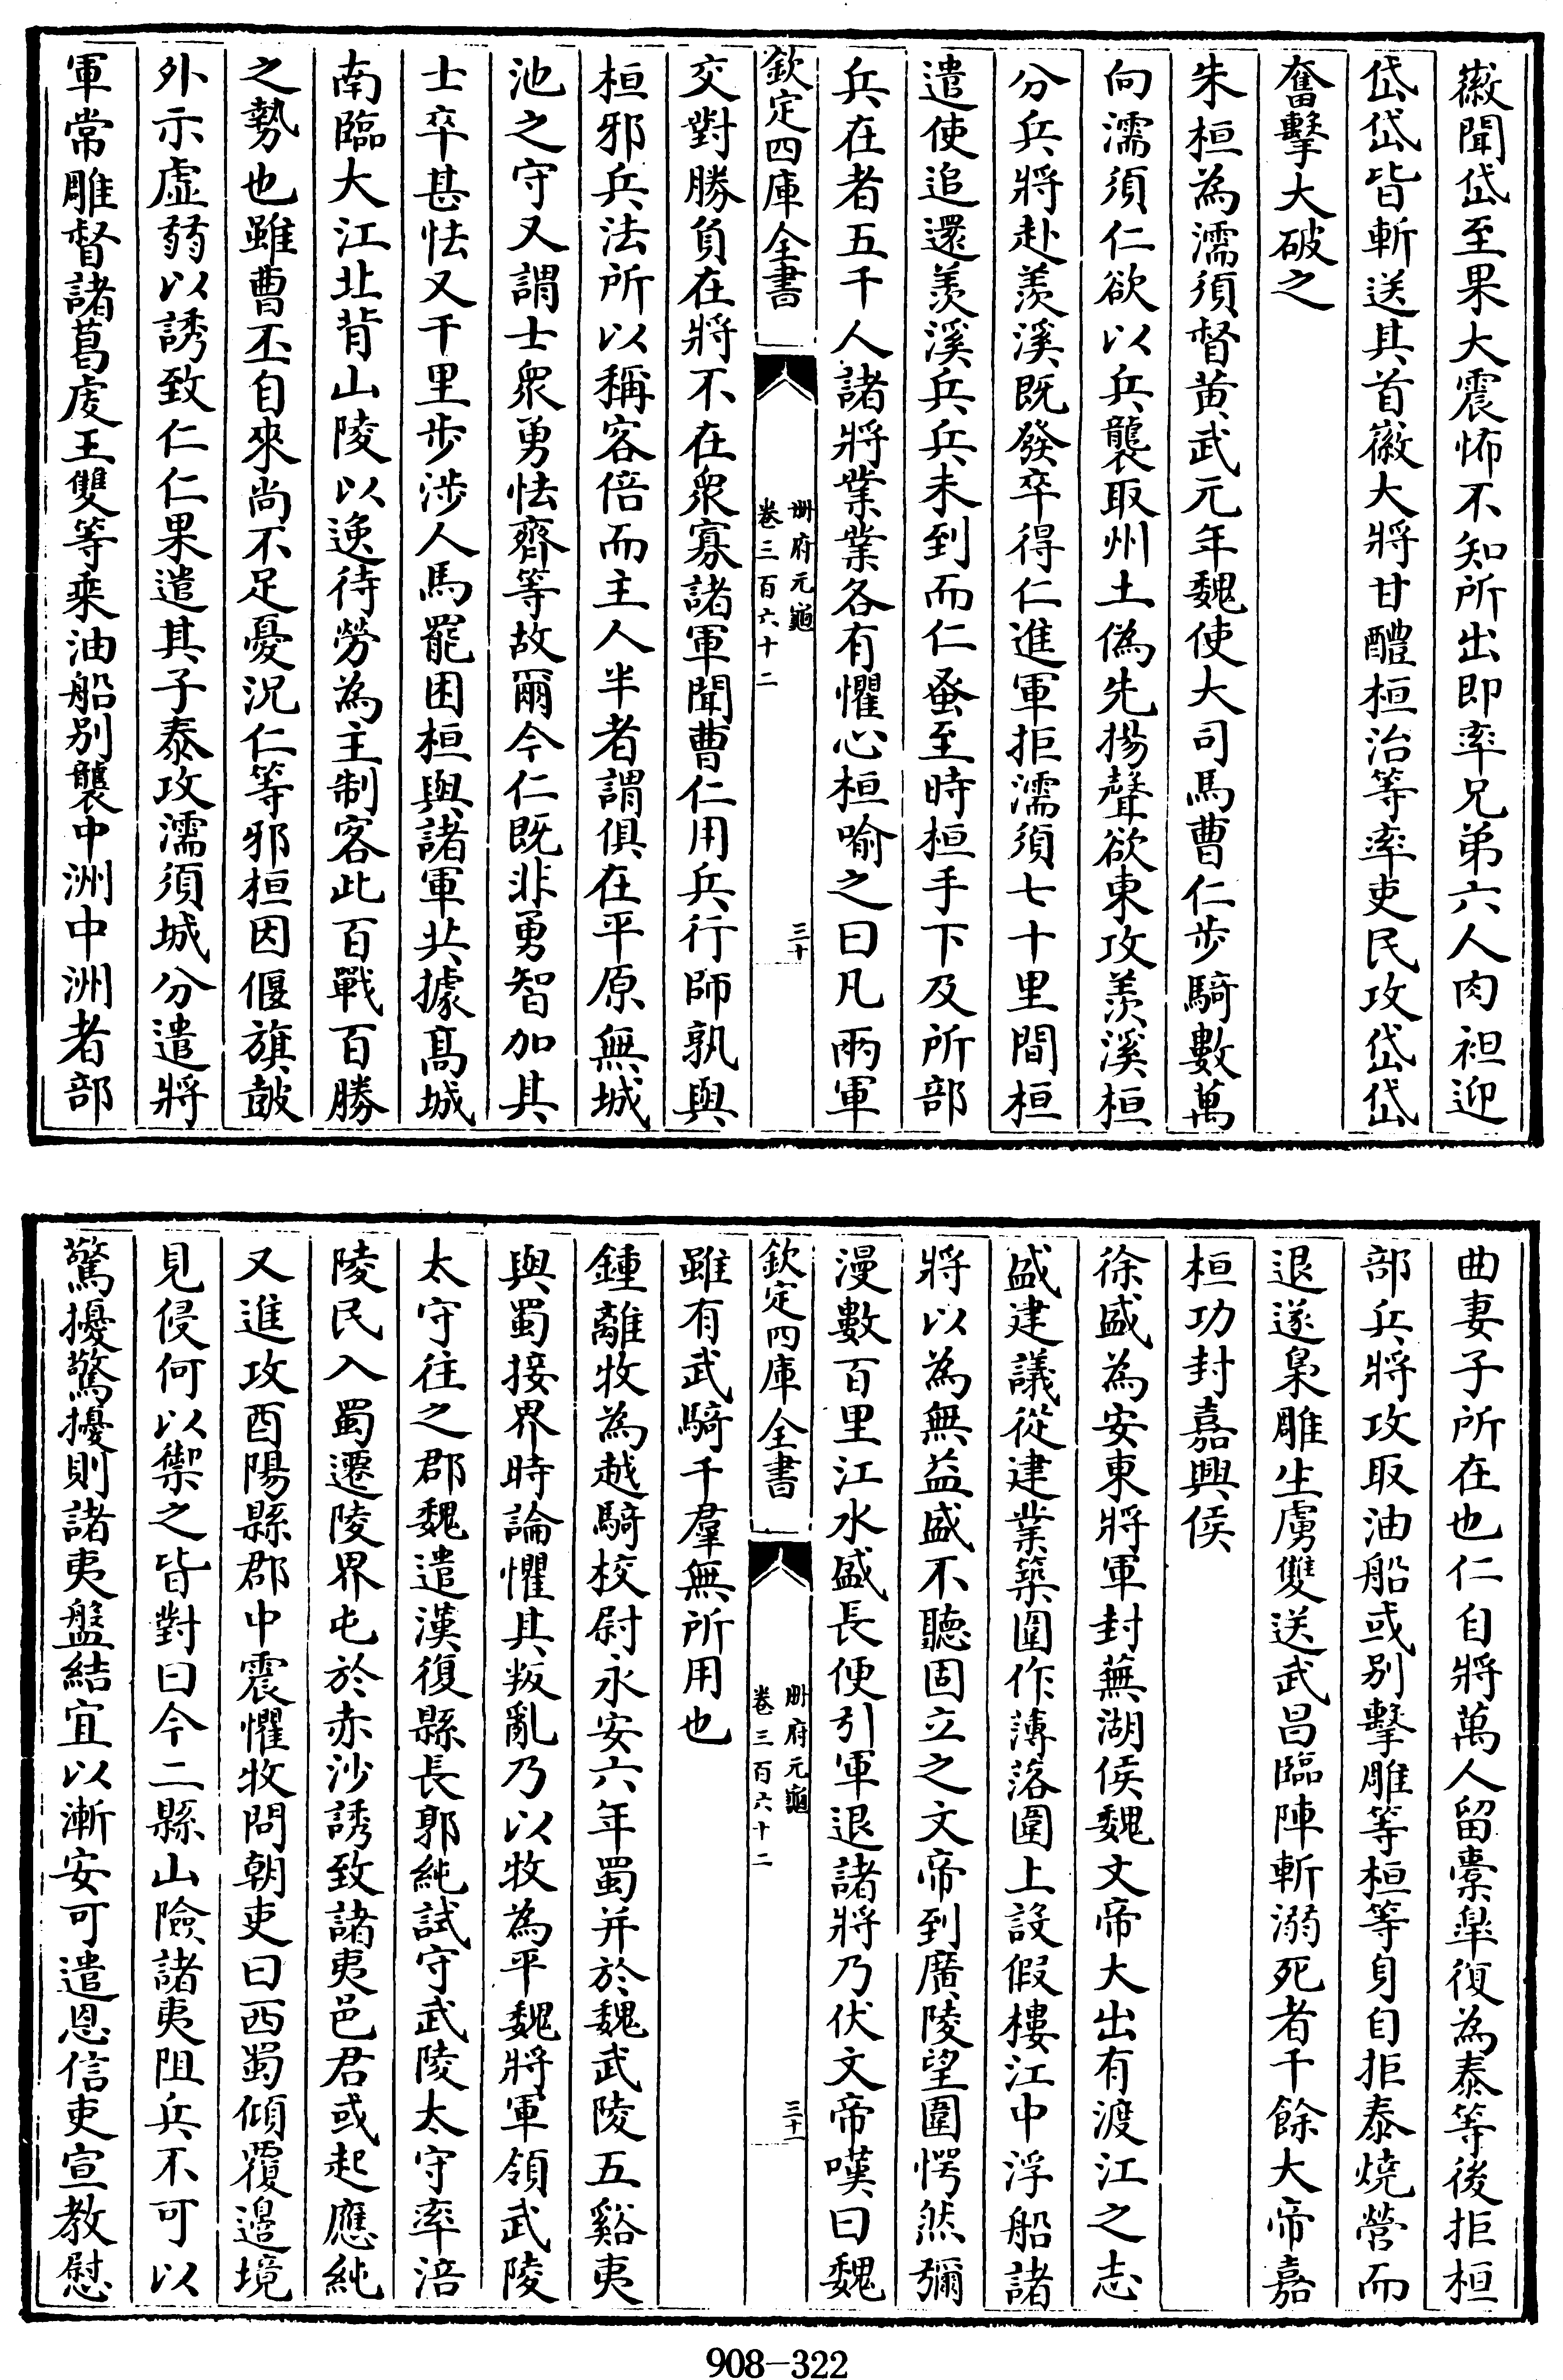 徽聞岱至果大震怖不知所出即率兄弟六人肉袒迎
岱岱皆斬送其首徽大將甘醴桓治等率吏民攻岱岱
奮擊大破之
朱桓為濡須督黄武元年魏使大司馬曹仁步騎數萬
向濡須仁欲以兵襲取州土偽先揚聲欲東攻羨溪桓
分兵將赴羨溪既發卒得仁進軍拒濡須七十里間桓
遣使追還羨溪兵兵未到而仁蚤至時桓手下及所部
兵在者五千人諸將業業各有懼心桓喻之曰凡兩軍
欽定四庫全書
册府元龜
卷三百六十二
三十
交對勝負在將不在衆寡諸軍聞曹仁用兵行師孰與
桓邪兵法所以稱客倍而主人半者謂俱在平原無城
池之守又謂士衆勇怯齊等故爾今仁既非勇智加其
士卒甚怯又千里步涉人馬罷困桓與諸軍共據髙城
南臨大江北背山陵以逸待勞為主制客此百戰百勝
之勢也雖曹丕自來尚不足憂況仁等邪桓因偃旗鼓
外示虛弱以誘致仁仁果遣其子泰攻濡須城分遣將
軍常雕督諸葛虔王雙等乘油船别襲中洲中洲者部
曲妻子所在也仁自將萬人留橐臯復為泰等後拒桓
部兵將攻取油船或别擊雕等桓等身自拒泰燒營而
退遂梟雕生虜雙送武昌臨陣斬溺死者千餘大帝嘉
桓功封嘉興侯
徐盛為安東將軍封蕪湖侯魏文帝大出有渡江之志
盛建議從建業築圍作薄落圍上設假樓江中浮船諸
將以為無益盛不聽固立之文帝到廣陵望圍愕然彌
漫數百里江水盛長便引軍退諸將乃伏文帝嘆曰魏
欽定四庫全書
册府元龜
卷三百六十二
三十一
雖有武騎千羣無所用也
鍾離牧為越騎校尉永安六年蜀并於魏武陵五谿夷
與蜀接界時論懼其叛亂乃以牧為平魏將軍領武陵
太守往之郡魏遣漢復縣長郭純試守武陵太守率涪
陵民入蜀遷陵界屯於赤沙誘致諸夷邑君或起應純
又進攻酉陽縣郡中震懼牧問朝吏曰西蜀傾覆邉境
見侵何以禦之皆對曰今二縣山險諸夷阻兵不可以
驚擾驚擾則諸夷盤結宜以漸安可遣恩信吏宣教慰
908-322